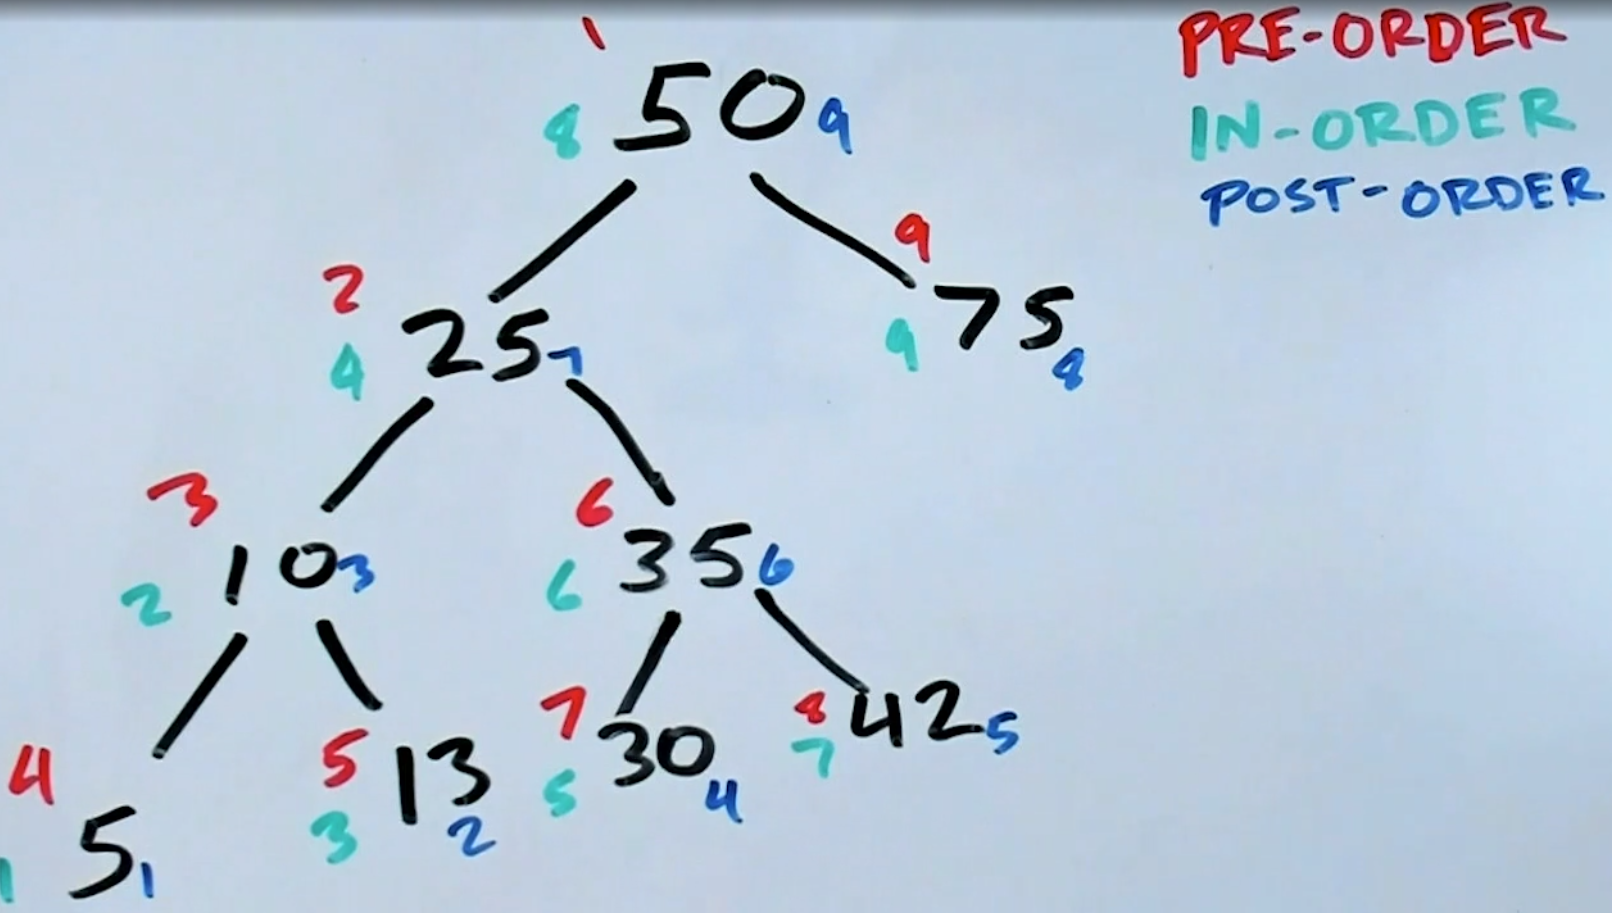 PRE-ORDER
IN-ORDER
POST-ORDER
1
8 50 9
2
4 25 7
9
9 75 8
3
2 10 3
6
6 35 6
4
1 5 1
5
3 13 2
7
5 30 4
8
7 42 5